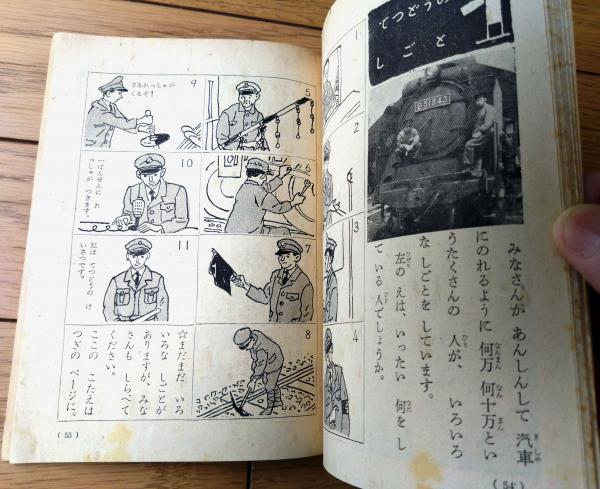 てつどうの
しごと
D51845
みなさんが あんしんして 汽車
にのれるように 何万 何十万とい
うたくさんの 人が、いろいろ
なしごとを しています。
左の えは、いったい 何をし
ている 人でしょうか。
1
2
3
4
(54)
5
6
7
8
9
さあれっしゃが
くるぞ!
10
一ばんせんに れ
っしゃが つきます。
11
私は てつどうの け
いさつです。
☆まだまだ いろ
いろな しごとが
ありますが、みな
さんも しらべて
ください。
ここの こたえは
つぎの ページに。
(55)